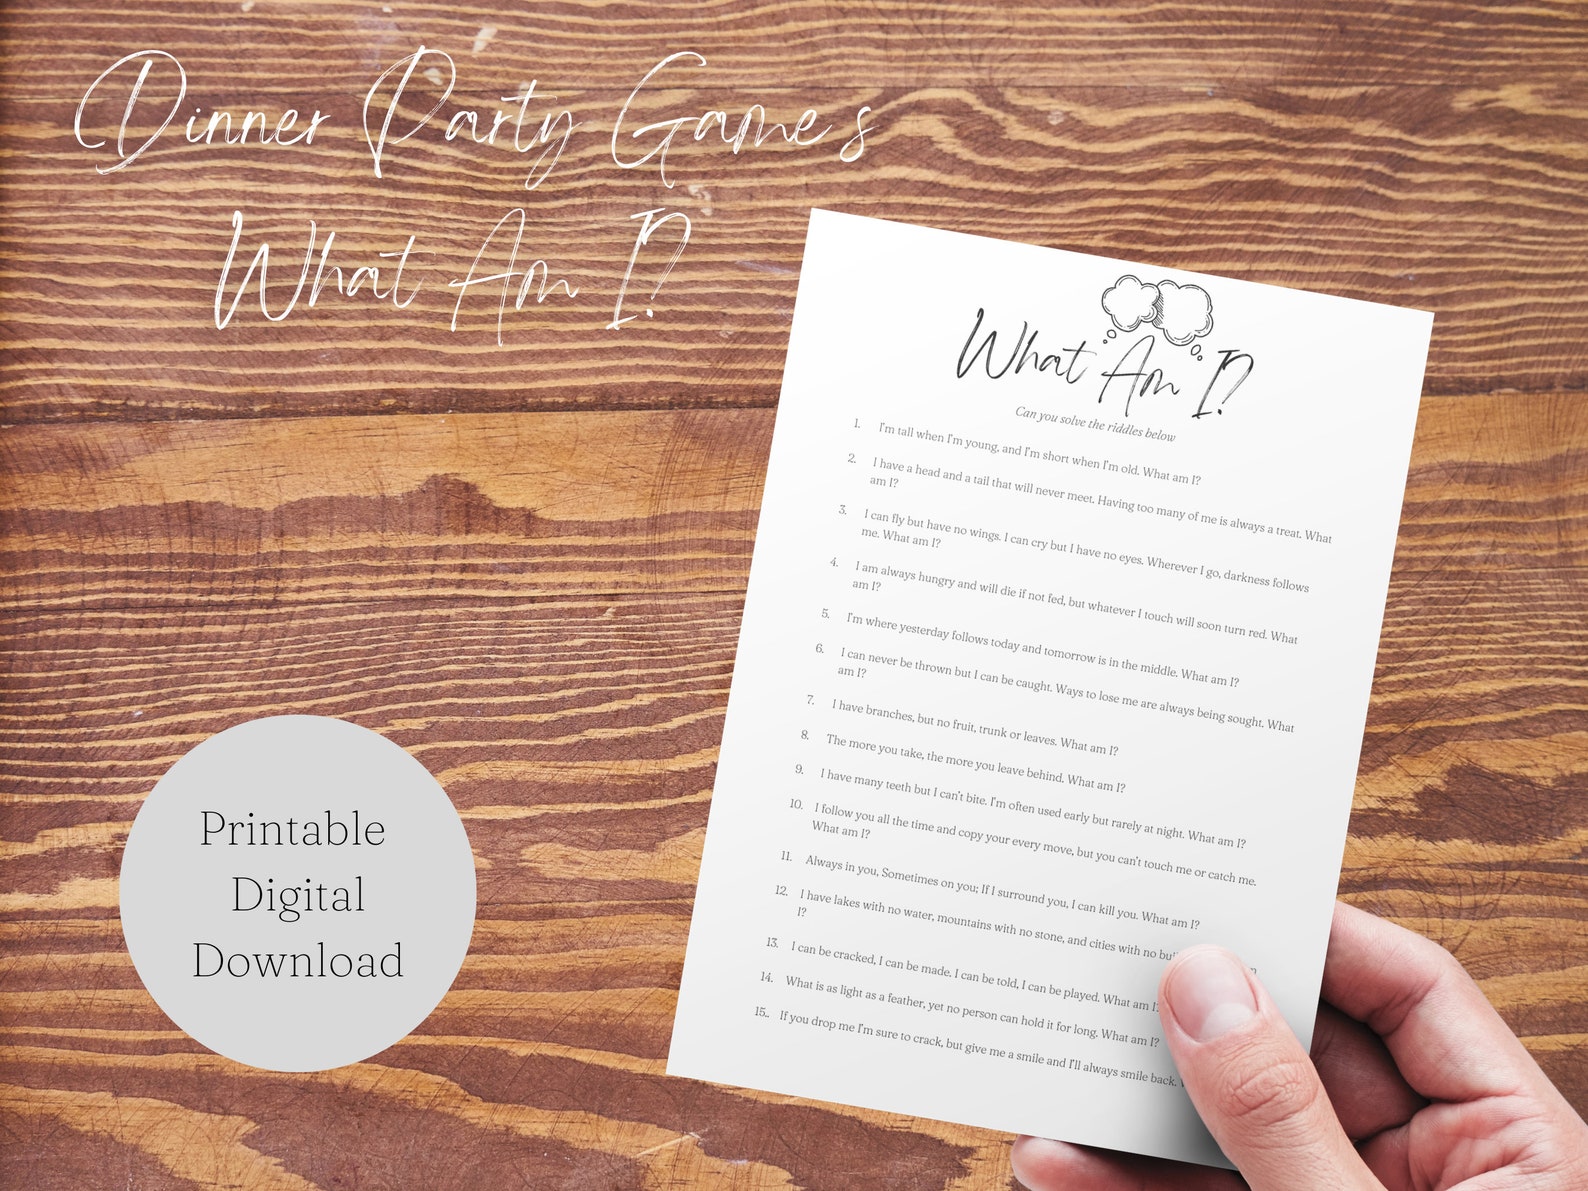 Dinner Party Games
What Am I?
What Am I?
Can you solve the riddles below
1. I'm tall when I'm young, and I'm short when I'm old. What am I?
2. I have a head and a tail that will never meet. Having too many of me is always a treat. What
am I?
3. I can fly but have no wings. I can cry but I have no eyes. Wherever I go, darkness follows
me. What am I?
4. I am always hungry and will die if not fed, but whatever I touch will soon turn red. What
am I?
5. I'm where yesterday follows today and tomorrow is in the middle. What am I?
6. I can never be thrown but I can be caught. Ways to lose me are always being sought. What
am I?
7. I have branches, but no fruit, trunk or leaves. What am I?
8. The more you take, the more you leave behind. What am I?
9. I have many teeth but I can't bite. I'm often used early but rarely at night. What am I?
10. I follow you all the time and copy your every move, but you can't touch me or catch me.
What am I?
11. Always in you, Sometimes on you; If I surround you, I can kill you. What am I?
12. I have lakes with no water, mountains with no stone, and cities with no
I?
13. I can be cracked, I can be made. I can be told, I can be played. What am I?
14. What is as light as a feather, yet no person can hold it for long. What am I?
15.. If you drop me I'm sure to crack, but give me a smile and I'll always smile back.
Printable
Digital
Download